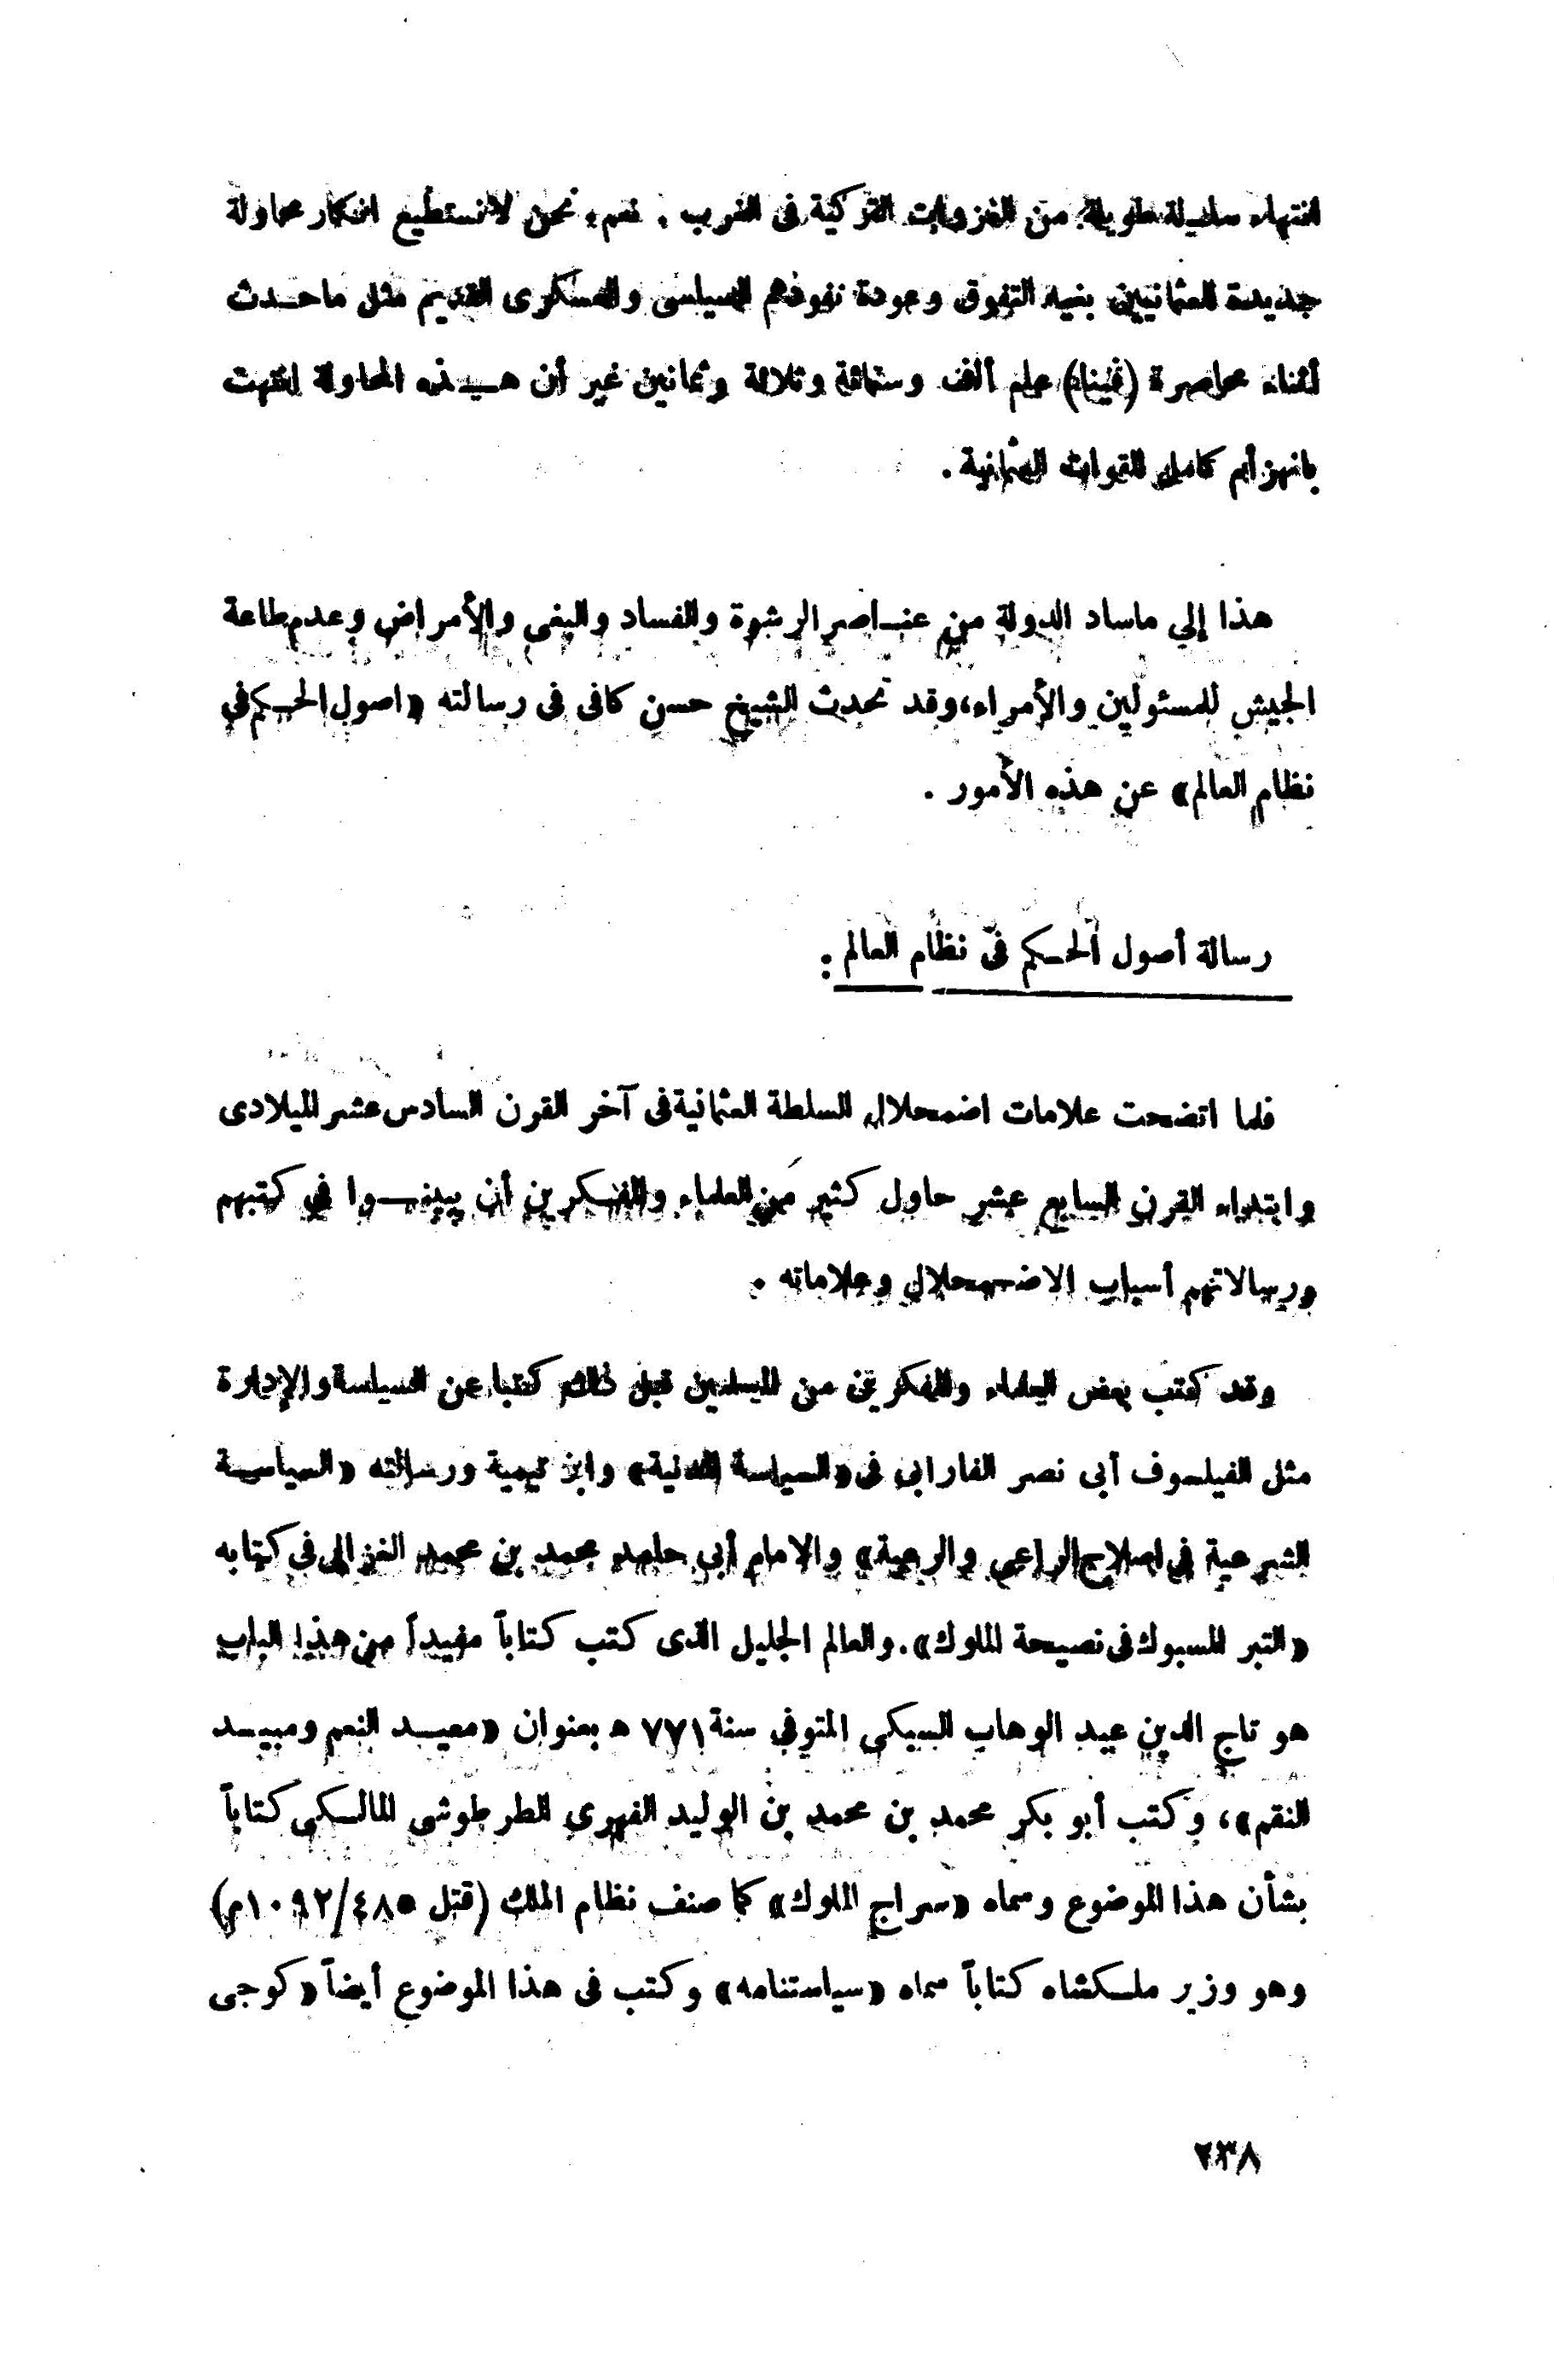 انتهاء سلسلة طويلة من الغزوات التركية فى الغرب . نعم، نحن لانستطيع انكار محاولة
جديدة للعثمانيين بغية التفوق وعودة نفوذهم السياسى والعسكرى القديم مثل ماحدث
أثناء محاصرة (فيينا) عام ألف وستمائة وثلاثة وثمانين غير أن هذه المحاولة انتهت
بانهزام كامل للقوات العثمانية .
هذا إلي ماساد الدولة من عناصر الرشوة والفساد والبغى والأمراض وعدم طاعة
الجيش للمسئولين والأمراء، وقد تحدث الشيخ حسن كافى فى رسالته «اصول الحكم في
نظام العالم» عن هذه الأمور .
رسالة أصول الحكم فى نظام العالم :
فلما اتضحت علامات اضمحلال السلطة العثمانية فى آخر القرن السادس عشر الميلادى
وابتداء القرن السابع عشر حاول كثير من العلماء والمفكرين أن يبينوا في كتبهم
ورسالاتهم أسباب الاضمحلال وعلاماته .
وقد كتب بعض العلماء والمفكرين من المسلمين قبل ذلك كتبا عن السياسة والإدارة
مثل الفيلسوف أبى نصر الفارابى فى «السياسة المدنية» وابن تيمية ورسالته «السياسة
الشرعية في اصلاح الراعي والرعية» والامام أبي حامد محمد بن محمد الغزالى في كتابه
«التبر المسبوك فى نصيحة الملوك». والعالم الجليل الذى كتب كتاباً مفيداً من هذا الباب
هو تاج الدين عبد الوهاب السبكى المتوفي سنة ٧٧١ ه بعنوان «معيد النعم ومبيد
النقم»، وكتب أبو بكر محمد بن محمد بن الوليد الفهرى الطرطوشى المالكى كتاباً
بشأن هذا الموضوع وسماه «سراج الملوك» كما صنف نظام الملك (قتل ٤٨٥/١٠٩٢م)
وهو وزير ملكشاه كتاباً سماه «سياستنامه» وكتب فى هذا الموضوع أيضاً «كوجى
٢٣٨